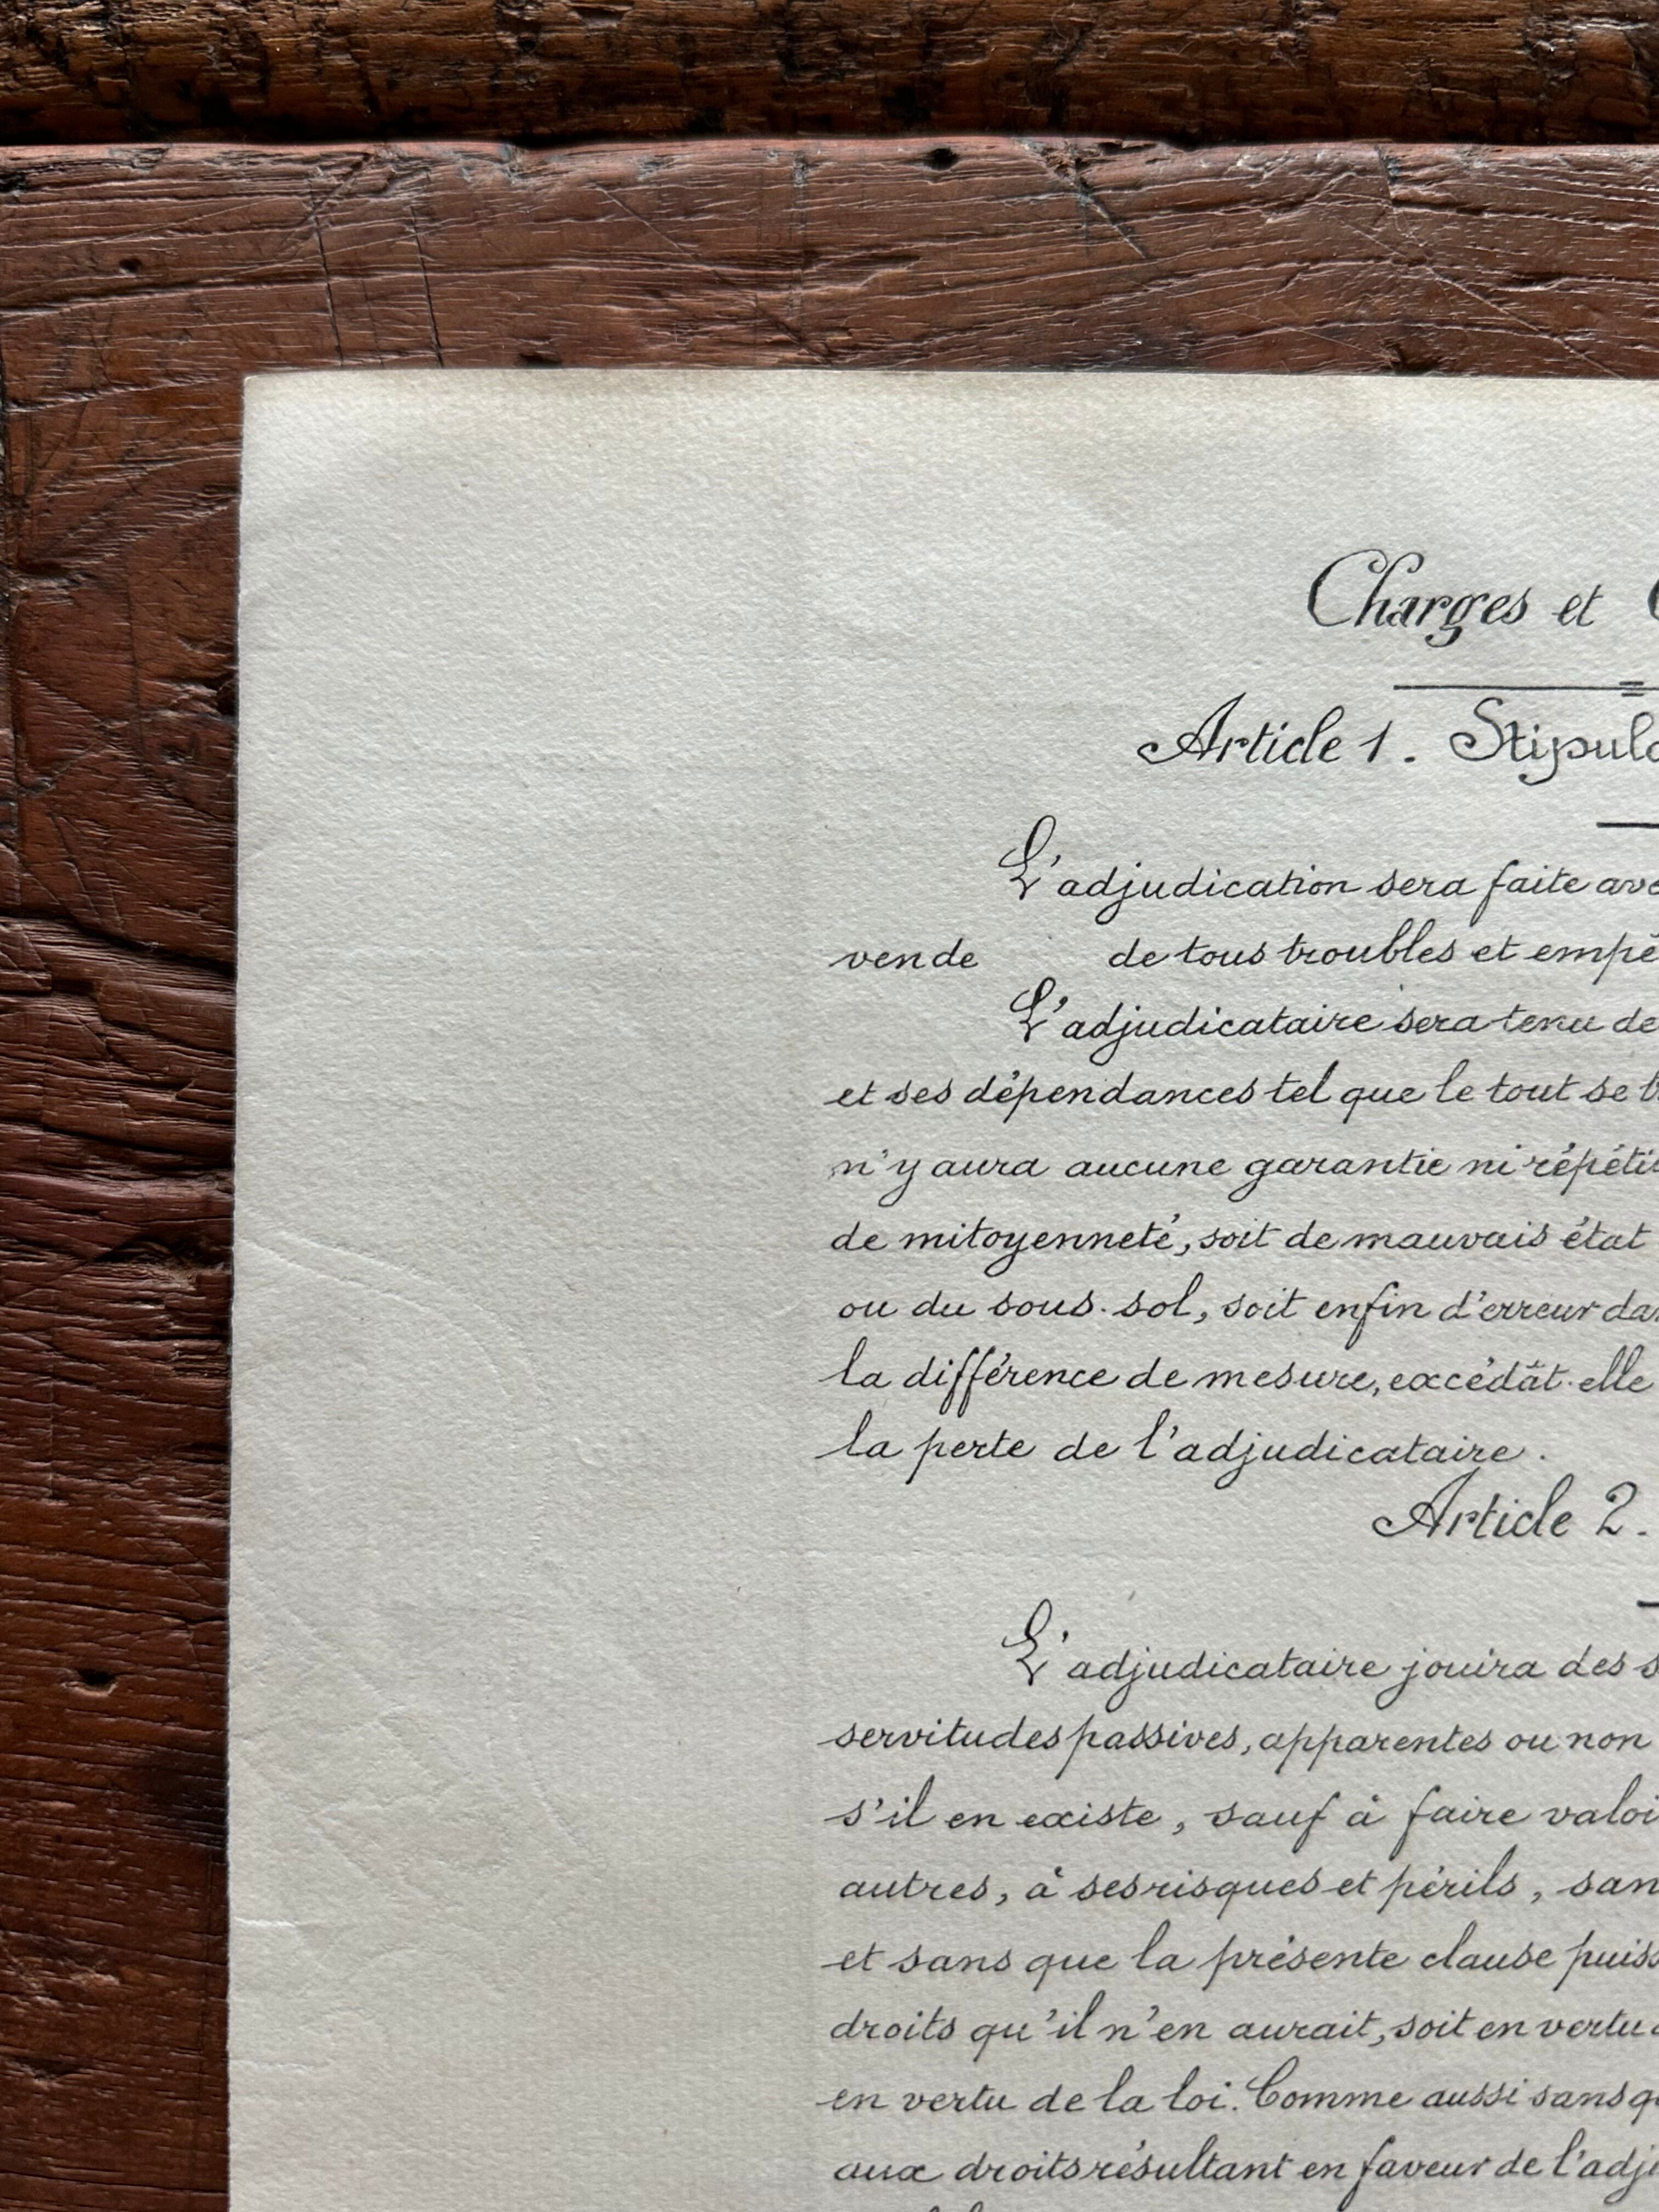 Charges et
Article 1. Stipula
L'adjudication sera faite ave
vende de tous troubles et empê
L'adjudicataire sera tenu de
et ses dépendances tel que le tout se t
n'y aura aucune garantie ni répétit
de mitoyenneté, soit de mauvais état
ou du sous-sol, soit enfin d'erreur dan
la différence de mesure, excédât-elle
la perte de l'adjudicataire.
Article 2.
L'adjudicataire jouira des s
servitudes passives, apparentes ou non
s'il en existe, sauf à faire valoi
autres, à ses risques et périls, san
et sans que la présente clause puiss
droits qu'il n'en aurait, soit en vertu
en vertu de la loi. Comme aussi sans q
aux droits résultant en faveur de l'adju